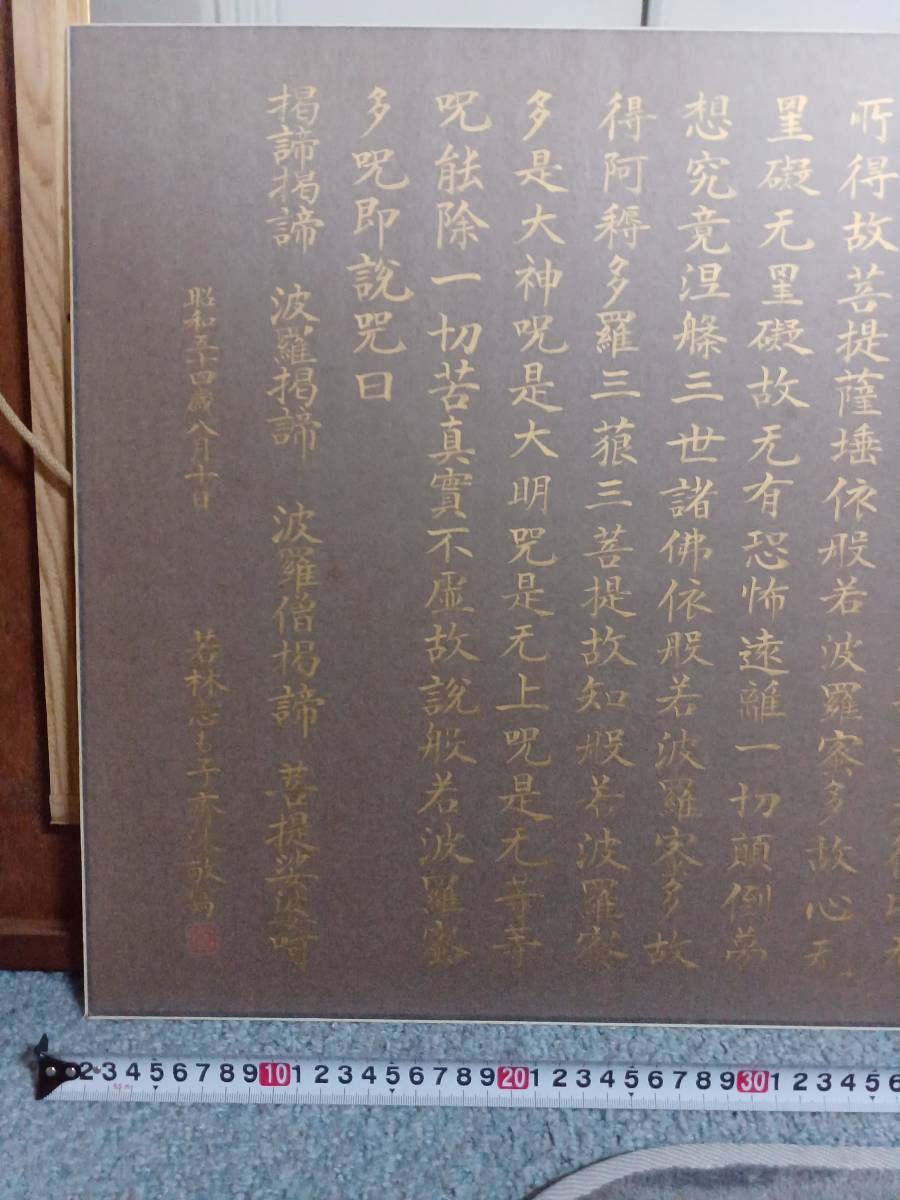 所得故菩提薩埵依般若波羅蜜多故心无
罣礙无罣礙故无有恐怖遠離一切顛倒夢
想究竟涅槃三世諸佛依般若波羅蜜多故
得阿耨多羅三藐三菩提故知般若波羅蜜
多是大神呪是大明咒是无上呪是无等等
呪能除一切苦真實不虛故說般若波羅蜜
多呪即說咒曰
揭諦揭諦 波羅揭諦 波羅僧揭諦 菩提娑婆呵
昭和五十四歲八月十日 若林志も子
2 3 4 5 6 7 8 9 10 1 2 3 4 5 6 7 8 9 20 1 2 3 4 5 6 7 8 9 30 1 2 3 4 5 6